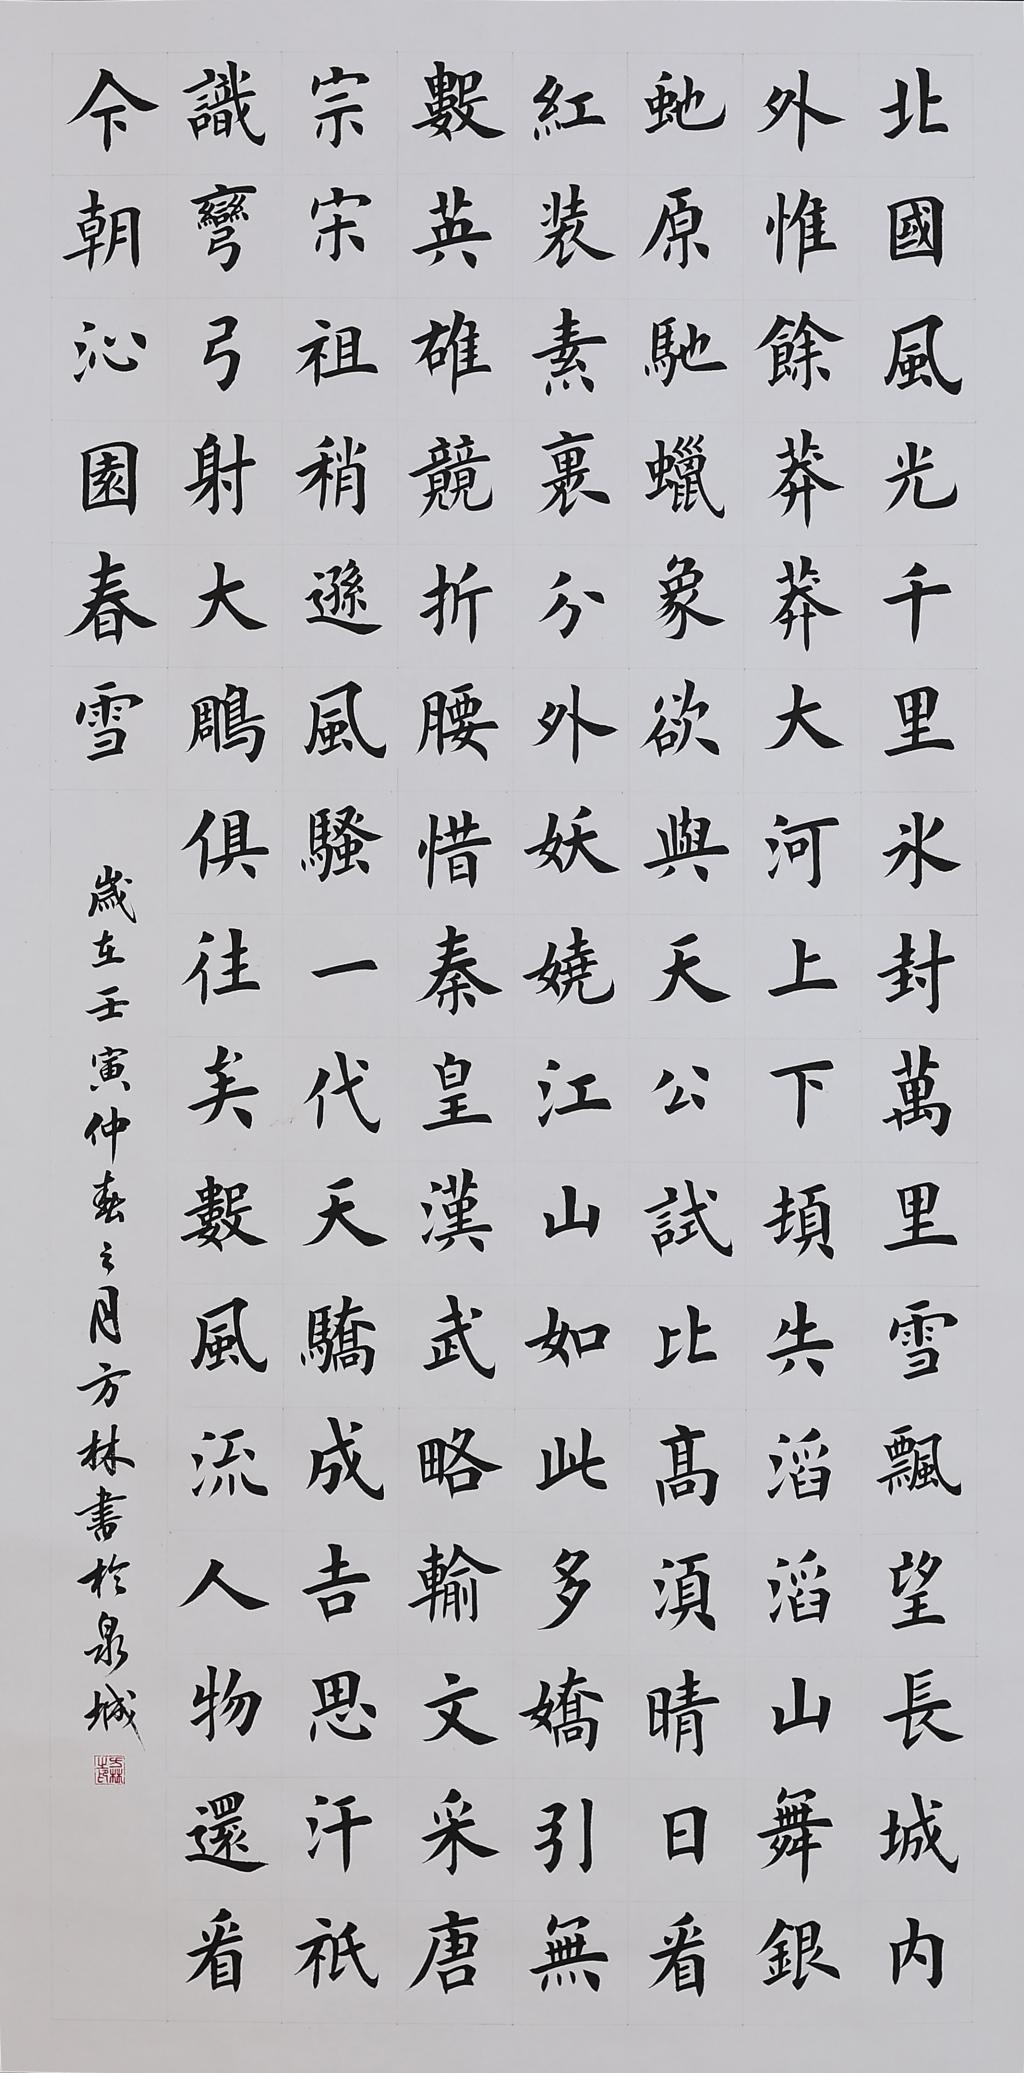 北國風光千里氷封萬里雪飄望長城内
外惟餘莽莽大河上下頓失滔滔山舞銀
虵原馳蠟象欲與天公試比髙湏晴日看
紅装素裹分外妖嬈江山如此多嬌引無
數英雄競折腰惜秦皇漢武略輸文采唐
宗宋祖稍遜風騷一代天驕成吉思汗祇
識彎弓射大鵰俱往矣數風流人物還看
今朝沁園春雪
歲在壬寅仲春之月方林書於泉城
方林之印